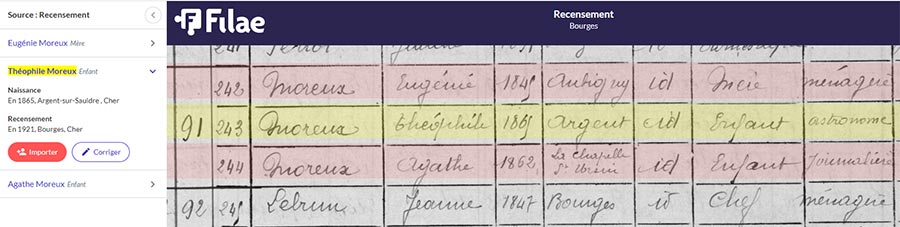 Source : Recensement
Eugénie Moreux Mère
Théophile Moreux Enfant
Naissance
En 1865, Argent-sur-Sauldre , Cher
Recensement
En 1921, Bourges, Cher
Importer Corriger
Agathe Moreux Enfant
Filae
Recensement
Bourges
241 Perrot
242 Moreux Eugénie 1845 Aubigny id Mère ménagère
91 243 Moreux théophile 1865 Argent id Enfant astronome
244 Moreux Agathe 1862 La Chapelle St Ursin id Enfant Journalière
92 245 Lebrun Jeanne 1847 Bourges id Chef ménagère